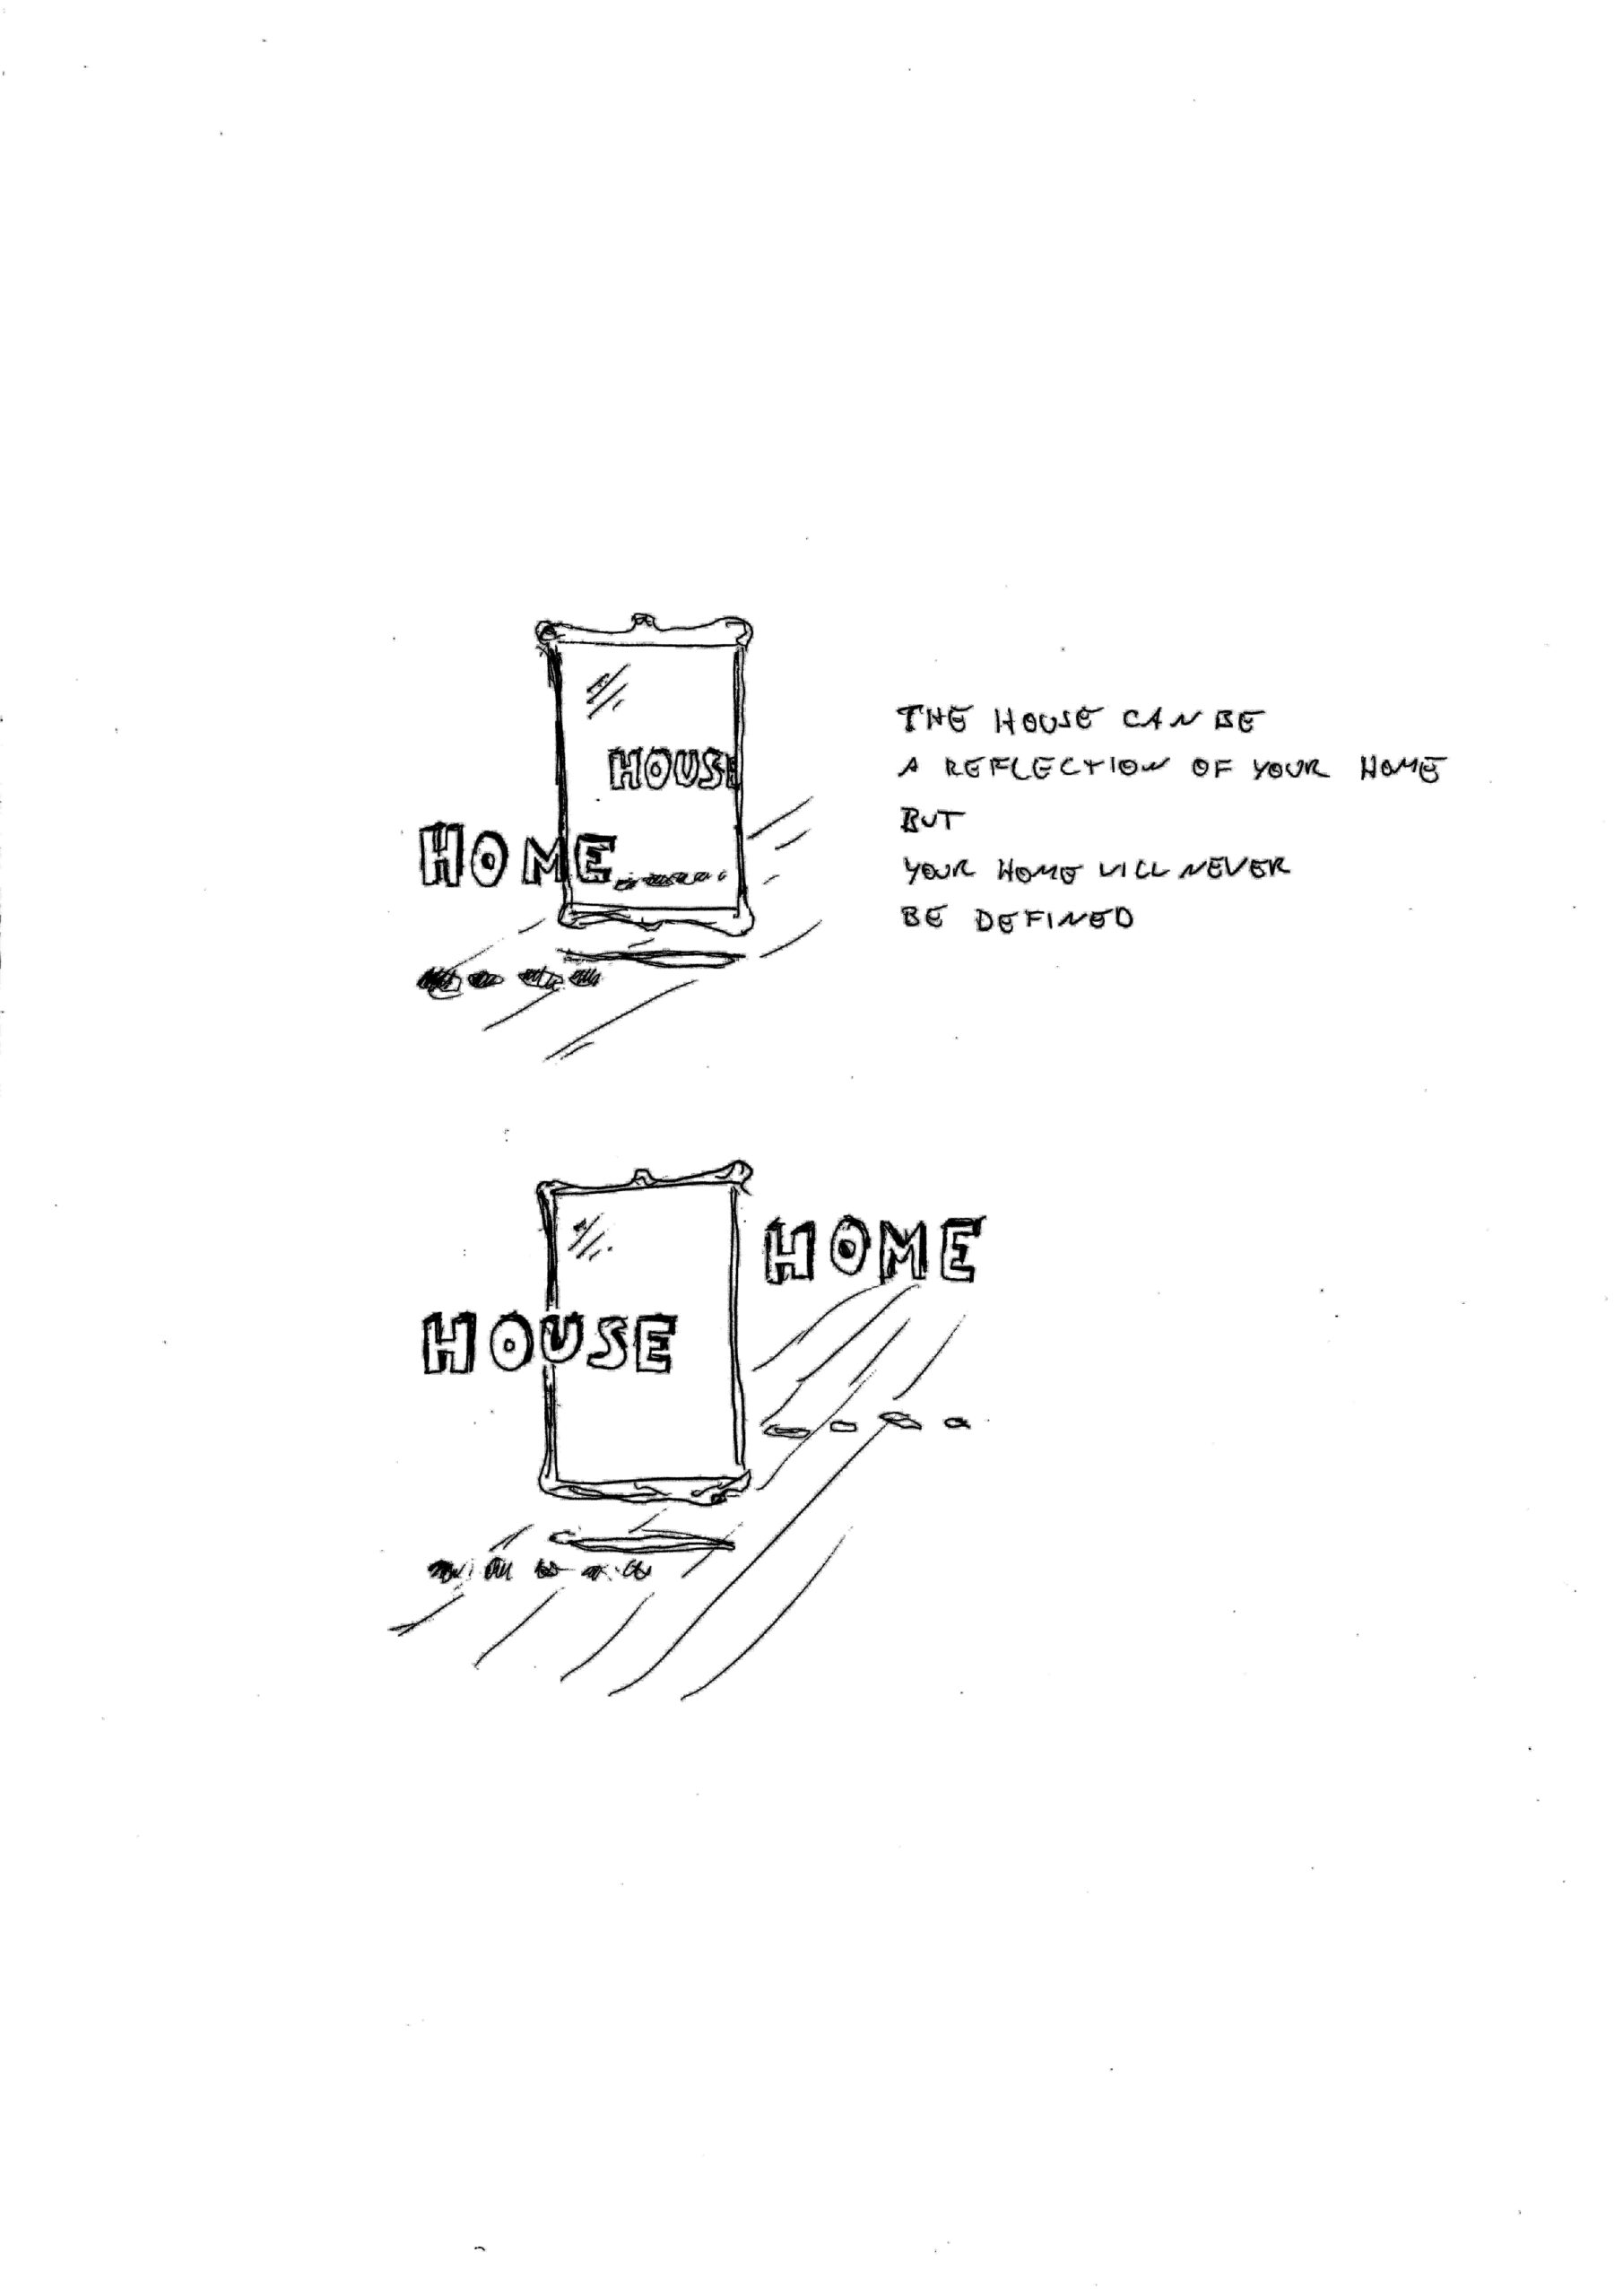 HOUSE
HOME
THE HOUSE CAN BE
A REFLECTION OF YOUR HOME
BUT
YOUR HOME WILL NEVER
BE DEFINED
HOME
HOUSE